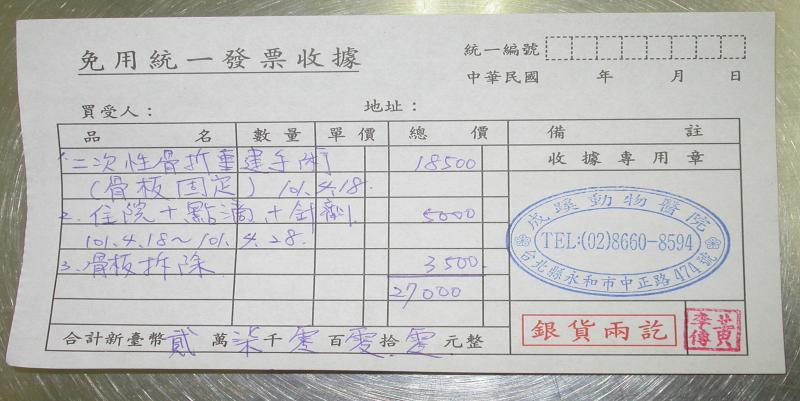 免用統一發票收據
統一編號
中華民國 年 月 日
買受人： 地址：
品 名 數量 單價 總 價 備 註
1. 二次性骨折重建手術 18500 收據專用章
(骨板固定) 101.4.18.
2. 住院+點滴+針劑 5000
101.4.18~101.4.28.
3. 骨板拆除 3500
27000
合計新臺幣貳萬柒千零百零拾零元整
動物醫院
TEL:(02)8660-8594
台北縣永和市中正路474號
銀貨兩訖
黃
李傳